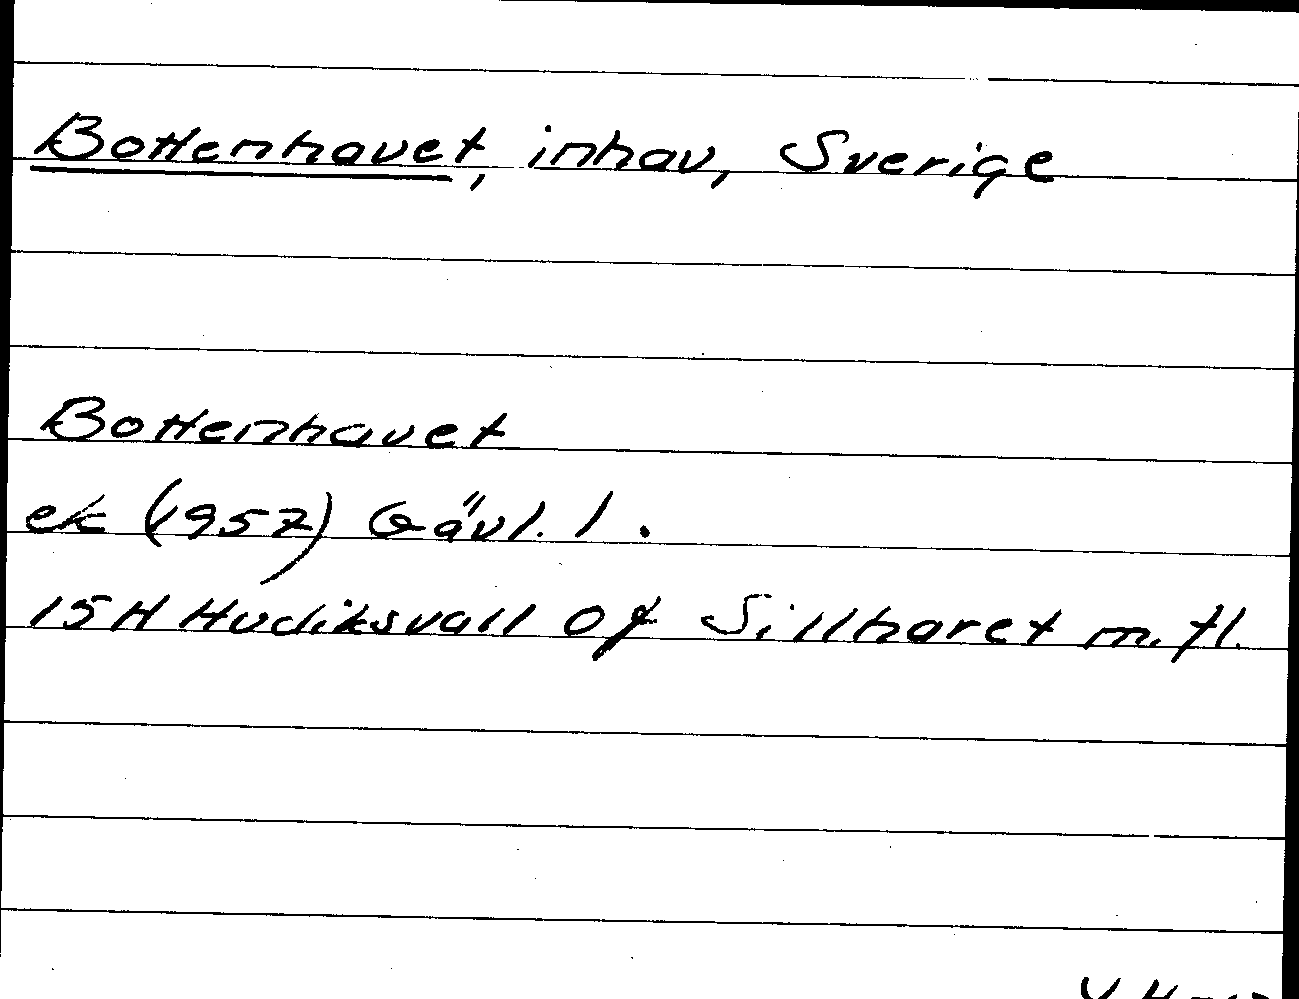 Bottenhavet, inhav, Sverige
Bottenhavet
ek (1957) Gävl. l.
15H Hudiksvall 0f Sillharet m.fl.